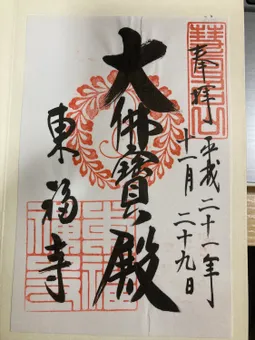 慧日山
奉拝
平成二十一年
十一月二十九日
大佛寶殿
東福寺